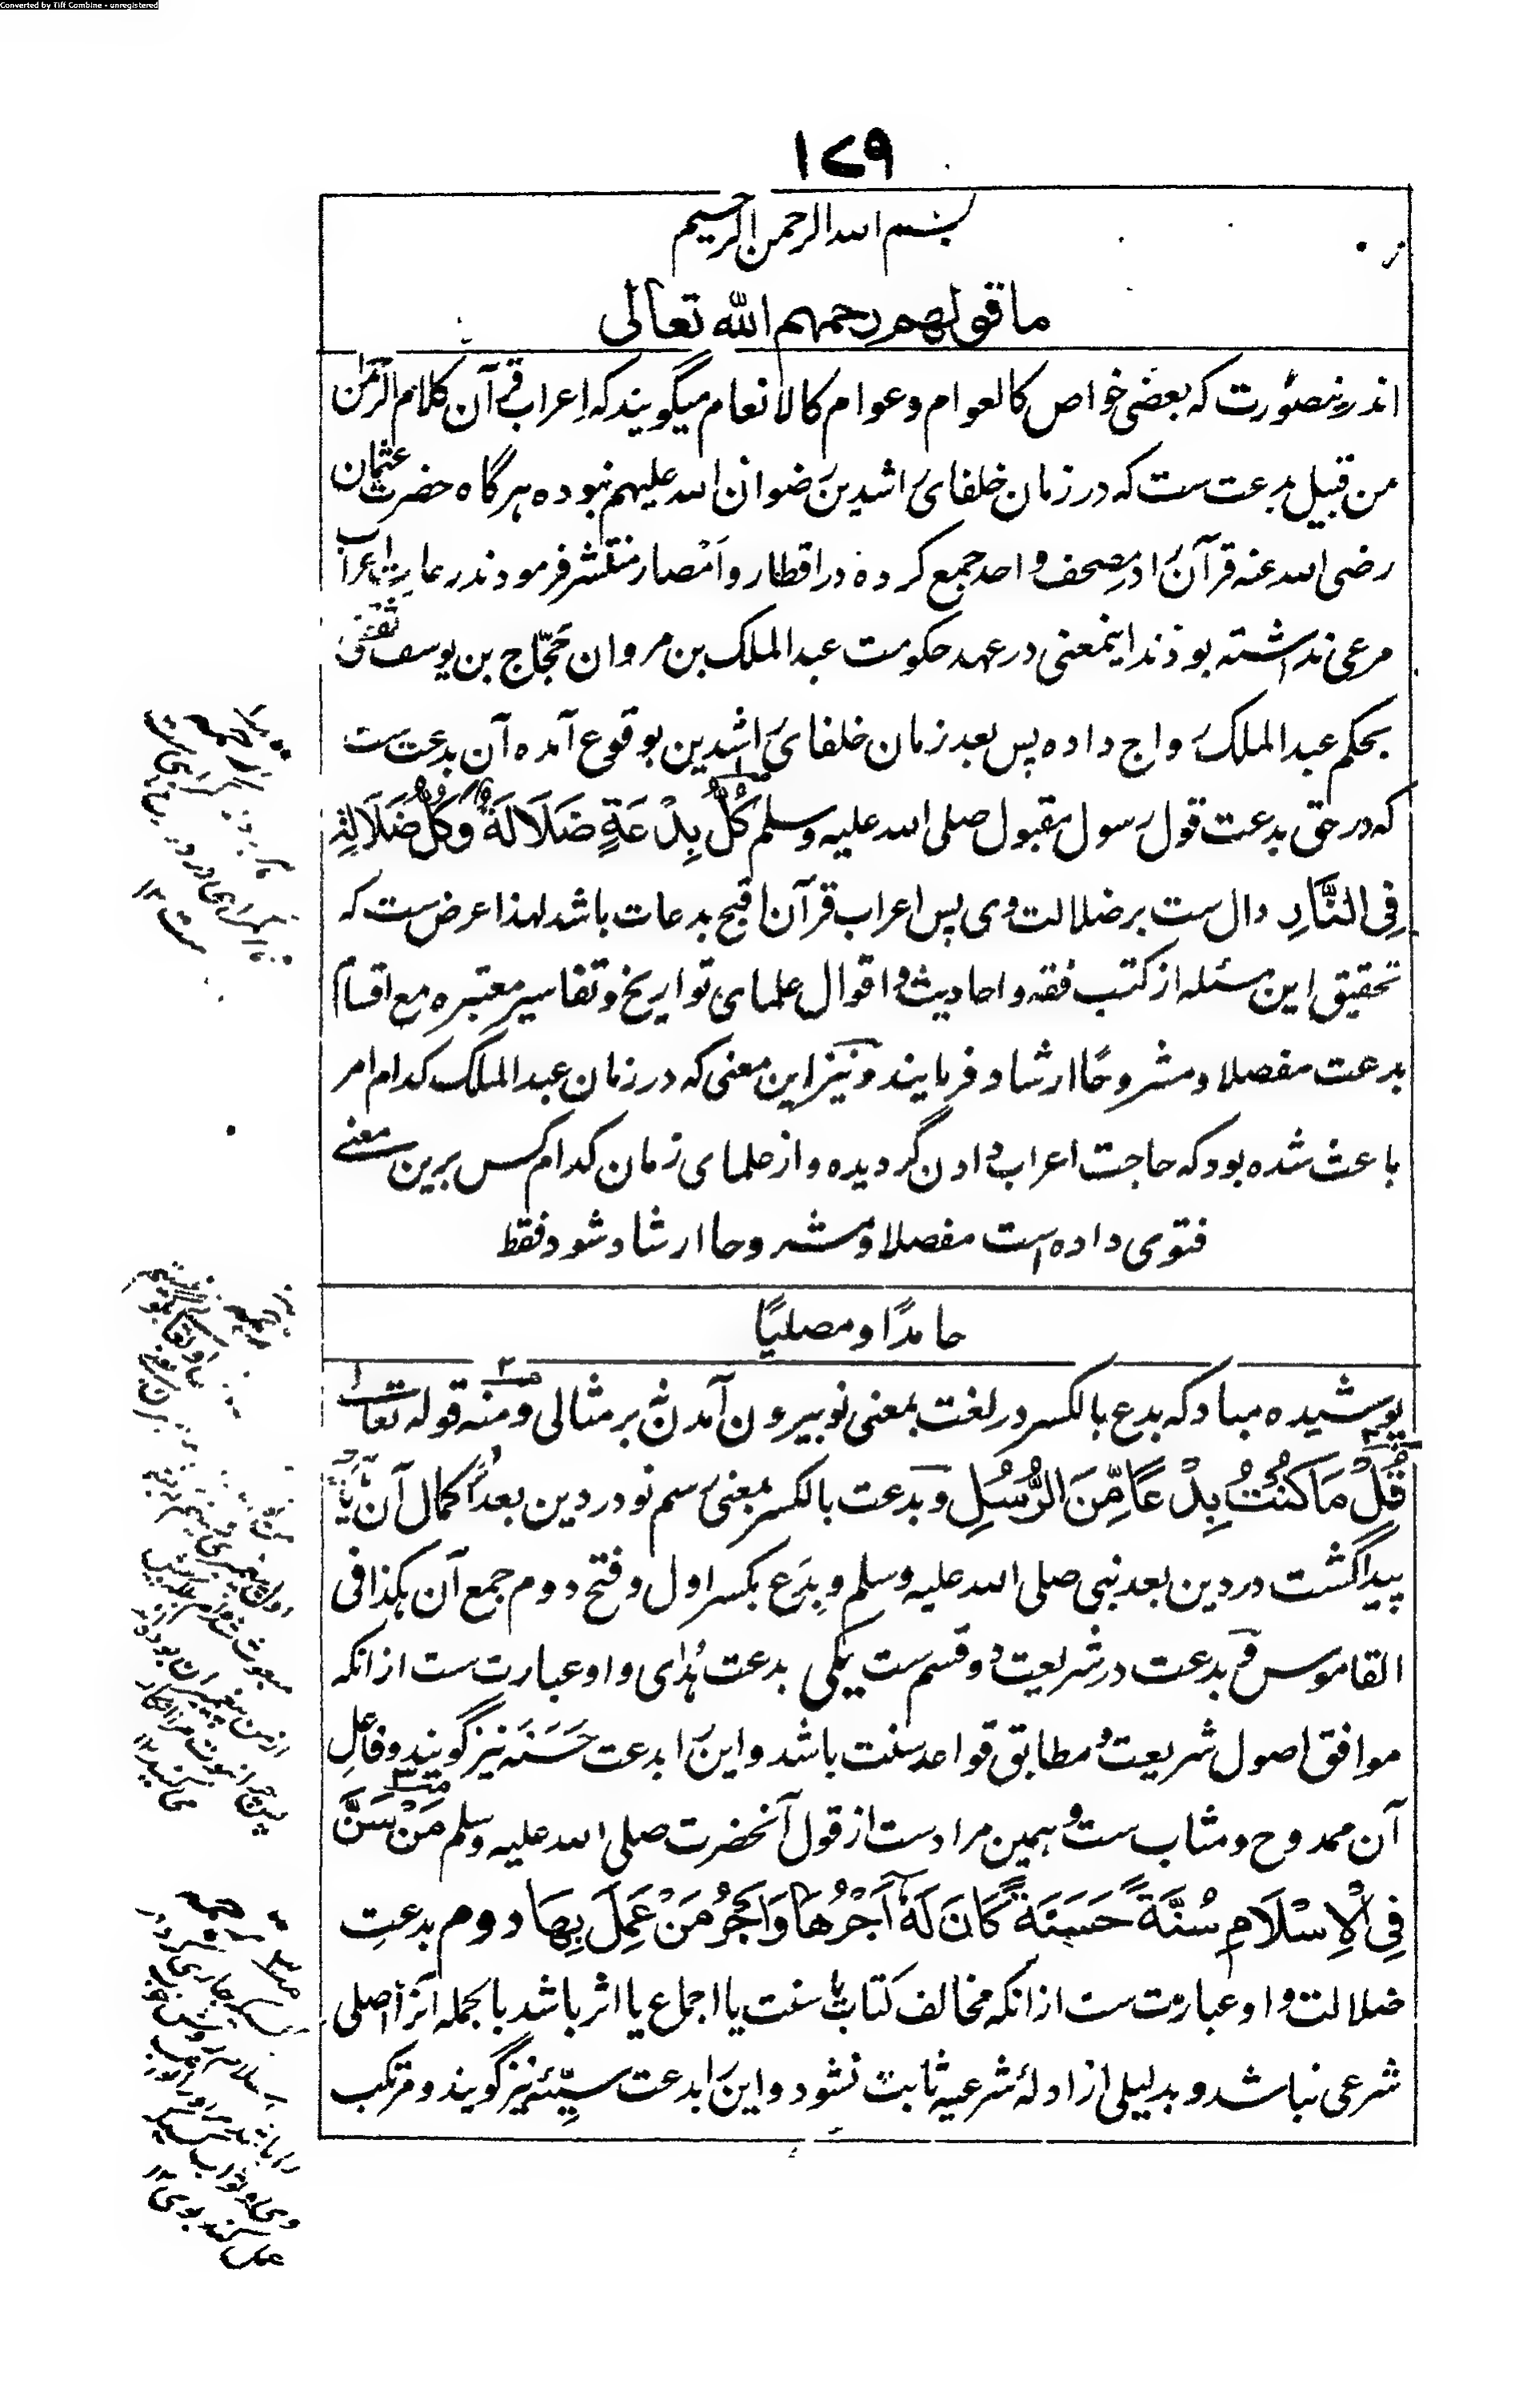 Converted by Tiff Combine - unregistered
۱۷۹
بسم الله الرحمن الرحیم
ما قولهم رحمهم الله تعالی
اندرینصورت که بعضی خواص کالعوام و عوام کالانعام میگویند که اِعراب قرآن کلام الرحمن
من قبیل بدعت ست که در زمان خلفای راشدین رضوان الله علیهم نبوده هرگاه حضرت عثمان
رضی الله عنه قرآن را در مصحف واحد جمع کرده در اقطار و اَمْصار منتشر فرمودند رعایت اعراب
مرعی نداشته بودند اینمعنی در عهد حکومت عبد الملک بن مروان حَجّاج بن یوسف ثقفی
بحکم عبد الملک رواج داده پس بعد زمان خلفای راشدین بوقوع آمده آن بدعت ست
که در حق بدعت قول رسول مقبول صلی الله علیه وسلم كُلُّ بِدْعَةٍ ضَلَالَةٌ وَكُلُّ ضَلَالَةٍ
فِی النَّارِ دال ست بر ضلالت وی پس اعراب قرآن اقبح بدعات باشد لهذا عرض ست که
تحقیق این مسئله از کتب فقه و احادیث و اقوال علمای تواریخ و تفاسیر معتبره مع اقسام
بدعت مفصلا و مشروحًا ارشاد فرمایند و نیز این معنی که در زمان عبد الملک کدام امر
باعث شده بود که حاجت اعراب دادن گردیده و از علمای زمان کدام کس برین معنے
فتوی داده است مفصلا و مشروحا ارشاد شود فقط
حامدًا و مصلیًا
پوشیده مباد که بدع بالکسر در لغت بمعنی نو بیرون آمدن نه بر مثالی و منه قوله تعالی
قُلْ مَا كُنْتُ بِدْعًا مِّنَ الرُّسُلِ و بدعت بالکسر بمعنی رسم نو در دین بعد اکمال آن یا
پیدا گشت در دین بعد نبی صلی الله علیه وسلم و بِدَع بکسر اول و فتح دوم جمع آن هکذا فی
القاموس و بدعت در شریعت دو قسم ست یکی بدعت هُدای و او عبارت ست از انکه
موافق اصول شریعت و مطابق قواعد سنت باشد و این را بدعت حَسَنَه نیز گویند و فاعل
آن ممدوح و مثاب ست و همین مرادست از قول آنحضرت صلی الله علیه وسلم مَنْ سَنَّ
فِی الْاِسْلَامِ سُنَّةً حَسَنَةً كَانَ لَهٗ اَجْرُهَا وَاَجْرُ مَنْ عَمِلَ بِهَا دوم بدعتِ
ضلالت و او عبارت ست از انکه مخالف کتاب یا سنت یا اجماع یا اثر باشد بالجمله آنرا اصلی
شرعی نباشد و بدلیلی از ادلهٔ شرعیه ثابت نشود و این را بدعت سیِّئه نیز گویند و مرتکب